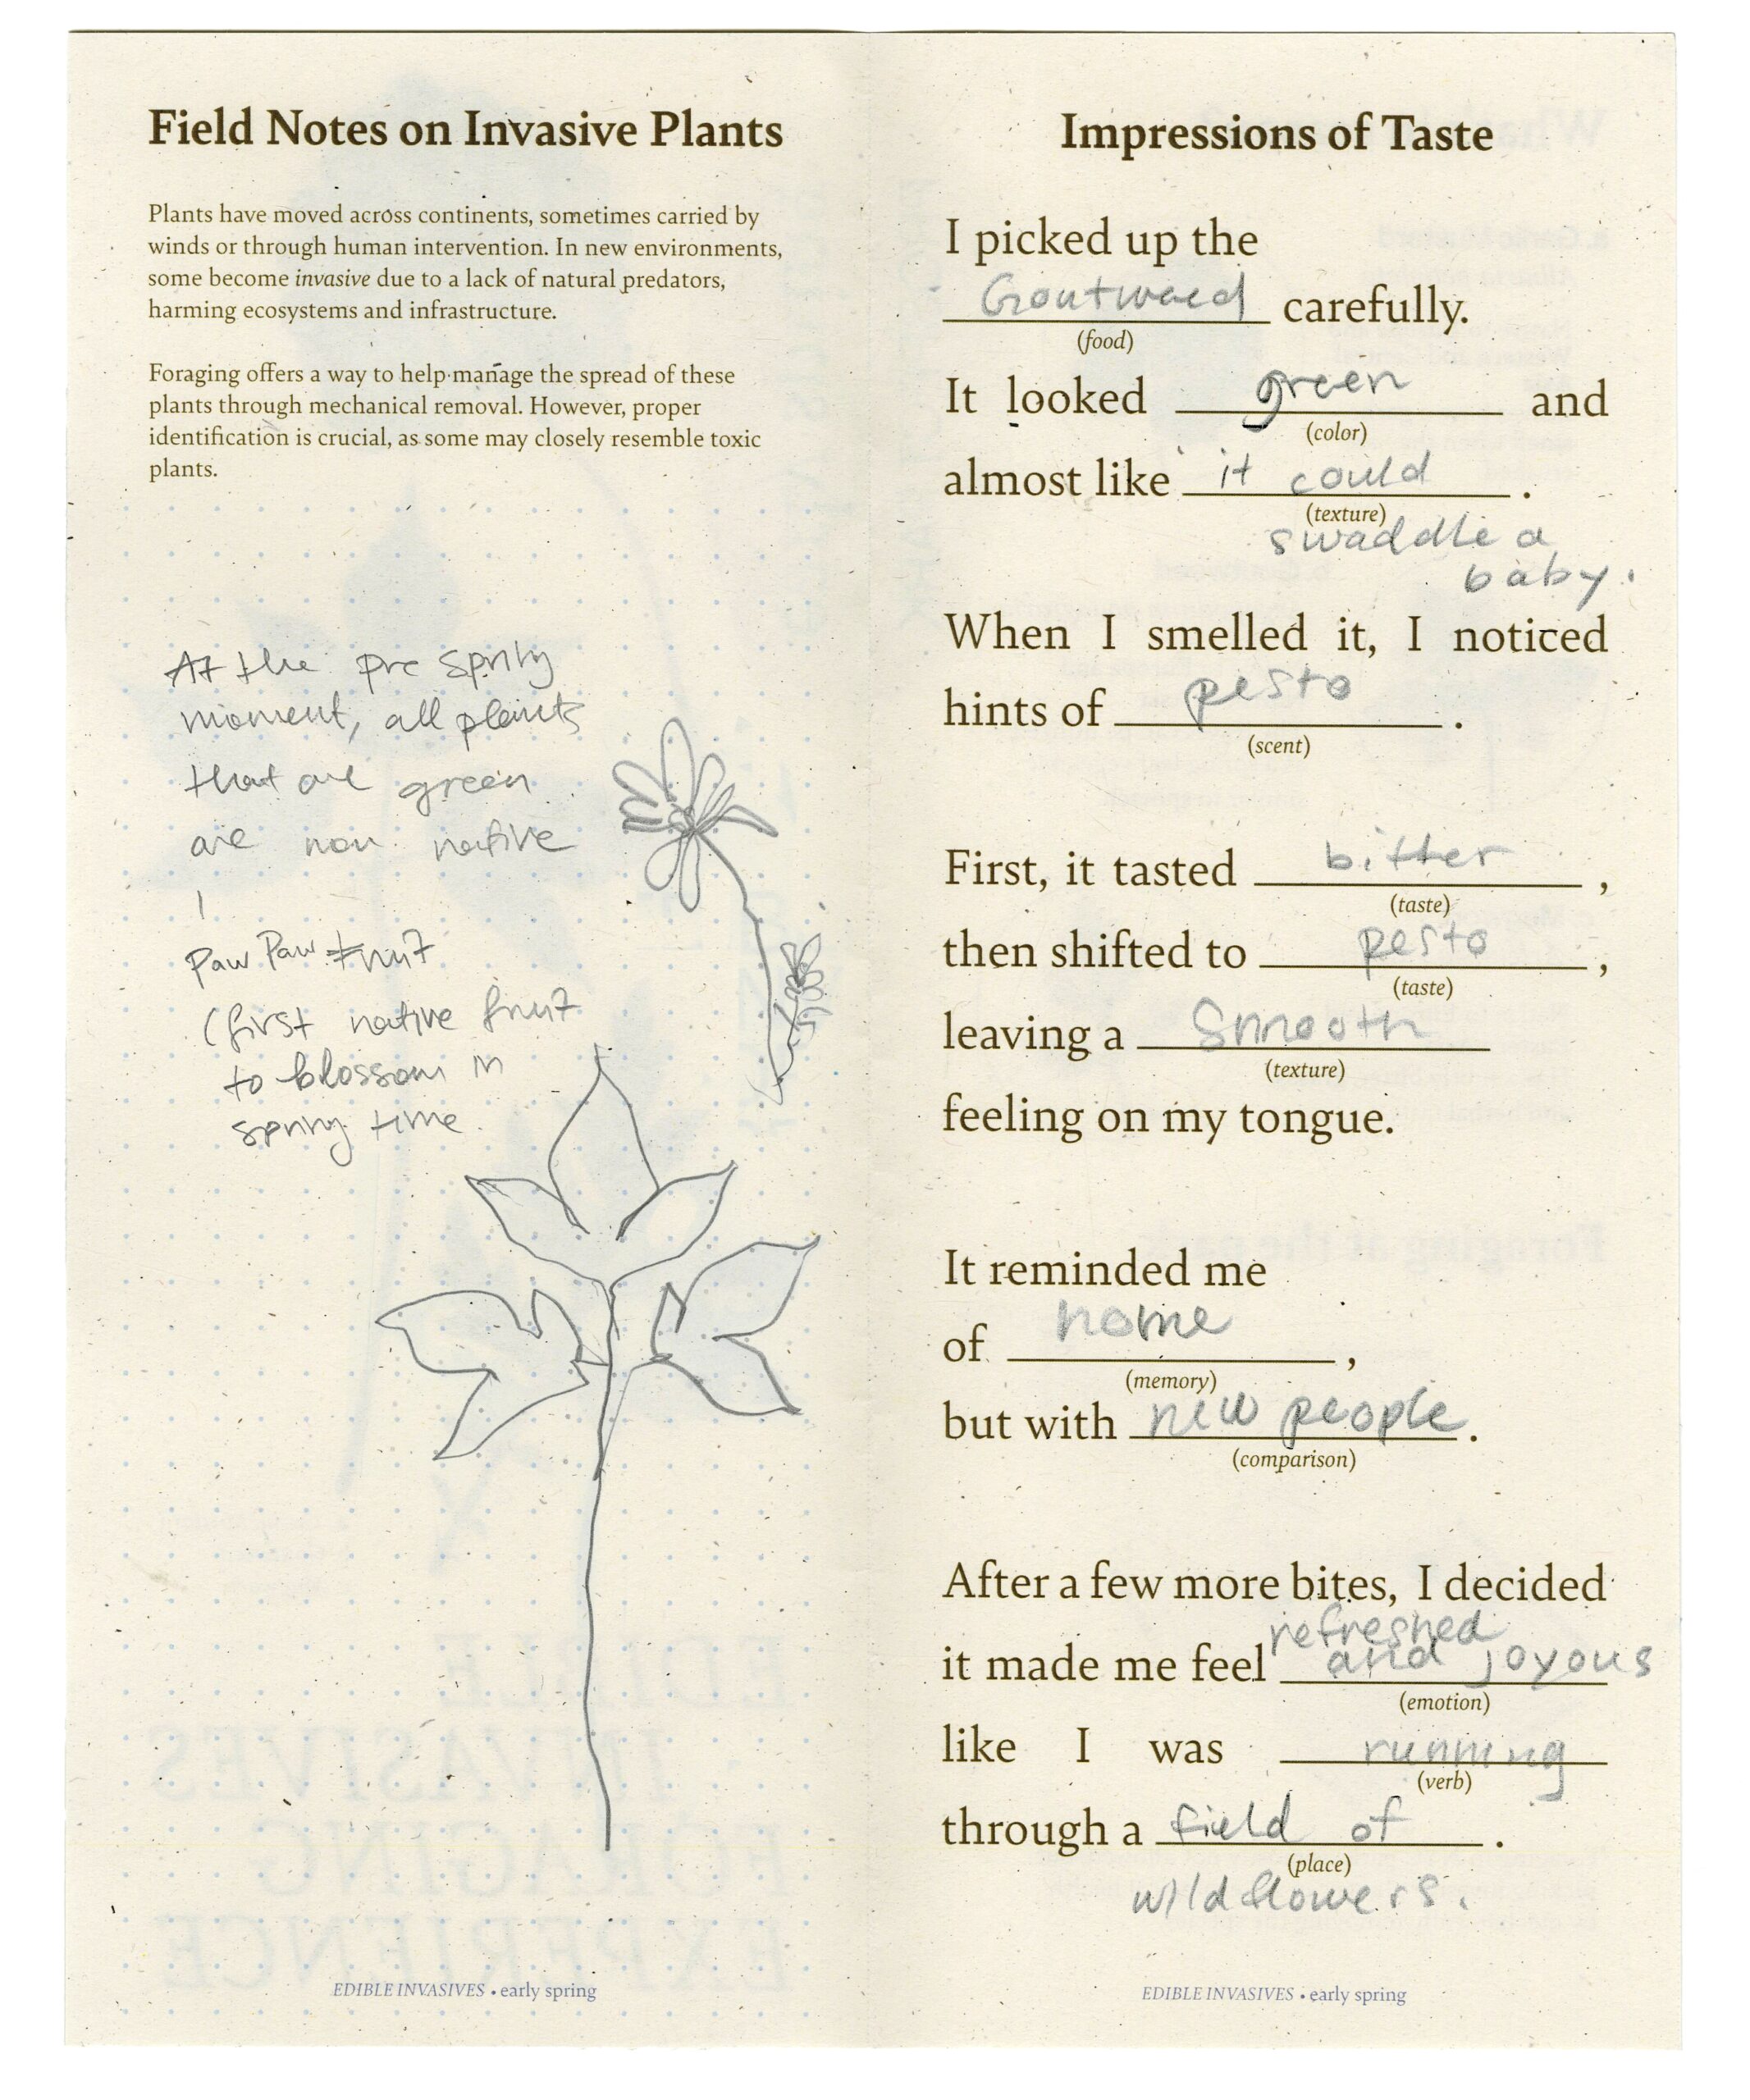 Field Notes on Invasive Plants
Plants have moved across continents, sometimes carried by
winds or through human intervention. In new environments,
some become invasive due to a lack of natural predators,
harming ecosystems and infrastructure.
Foraging offers a way to help manage the spread of these
plants through mechanical removal. However, proper
identification is crucial, as some may closely resemble toxic
plants.
At the pre spring
moment, all plants
that are green
are non native
Paw Paw fruit
(first native fruit
to blossom in
spring time.
EDIBLE INVASIVES • early spring
Impressions of Taste
I picked up the
Goutweed carefully.
(food)
It looked green and
(color)
almost like it could .
(texture)
swaddle a
baby.
When I smelled it, I noticed
hints of pesto .
(scent)
First, it tasted bitter ,
(taste)
then shifted to pesto ,
(taste)
leaving a Smooth
(texture)
feeling on my tongue.
It reminded me
of home ,
(memory)
but with new people .
(comparison)
After a few more bites, I decided
refreshed
it made me feel and joyous
(emotion)
like I was running
(verb)
through a field of .
(place)
wildflowers.
EDIBLE INVASIVES • early spring